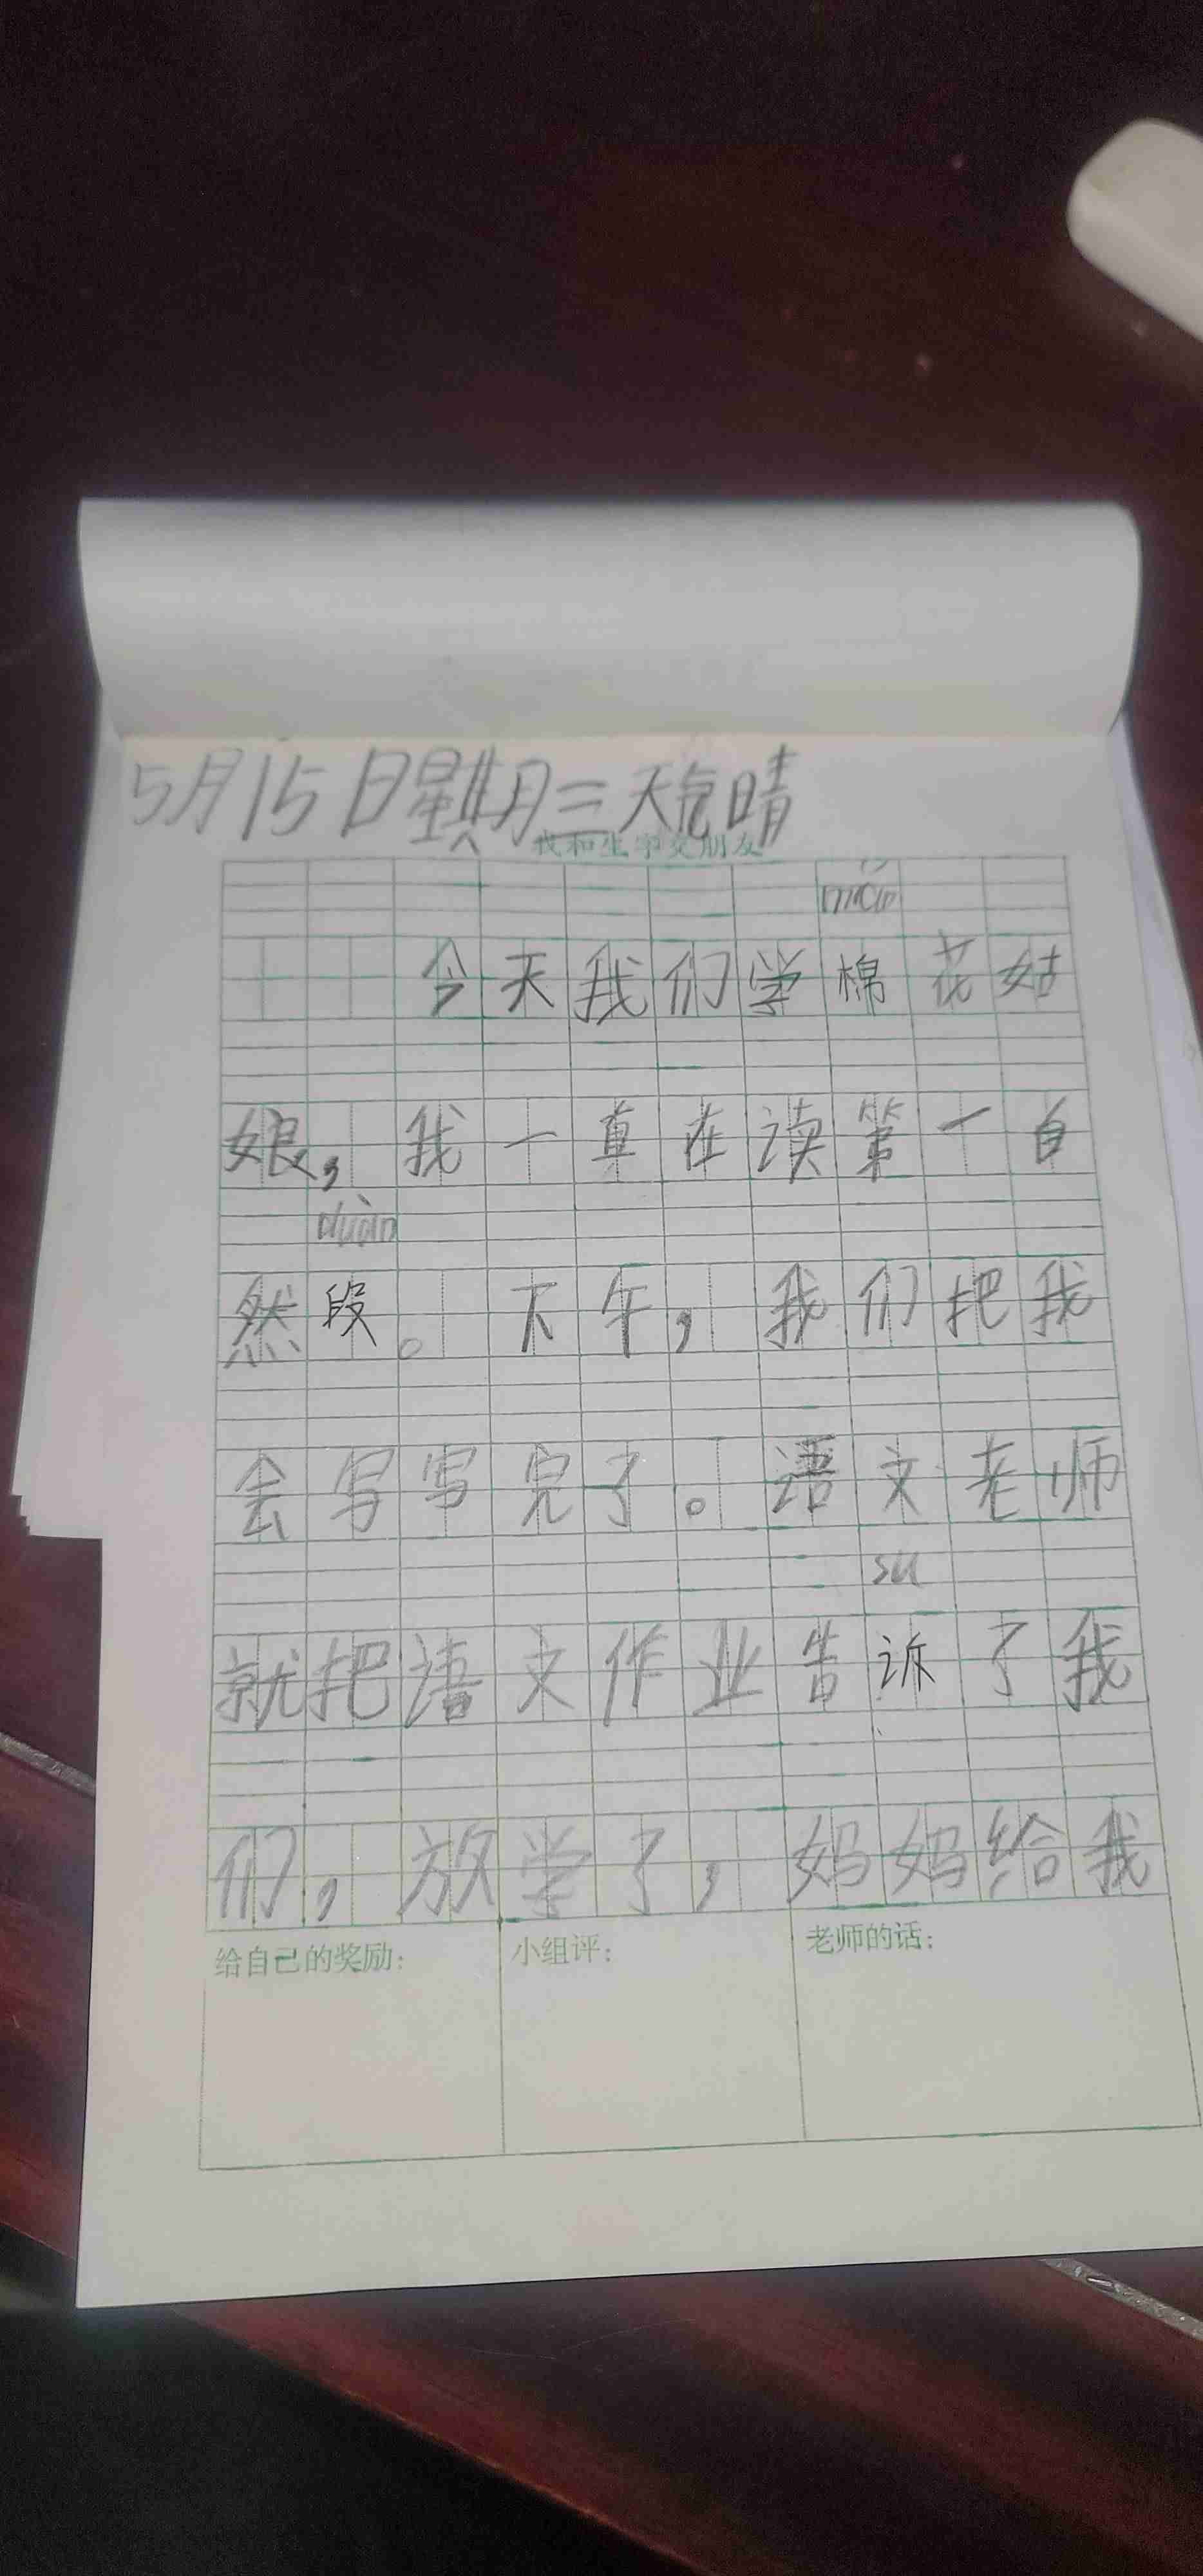 5月15日星期三天气晴
我和生字交朋友
mián
今天我们学棉花姑
娘，我一真在读第一自
duàn
然段。下午，我们把我
会写写完了。语文老师
sù
就把语文作业告诉了我
们，放学了，妈妈给我
给自己的奖励：
小组评：
老师的话：